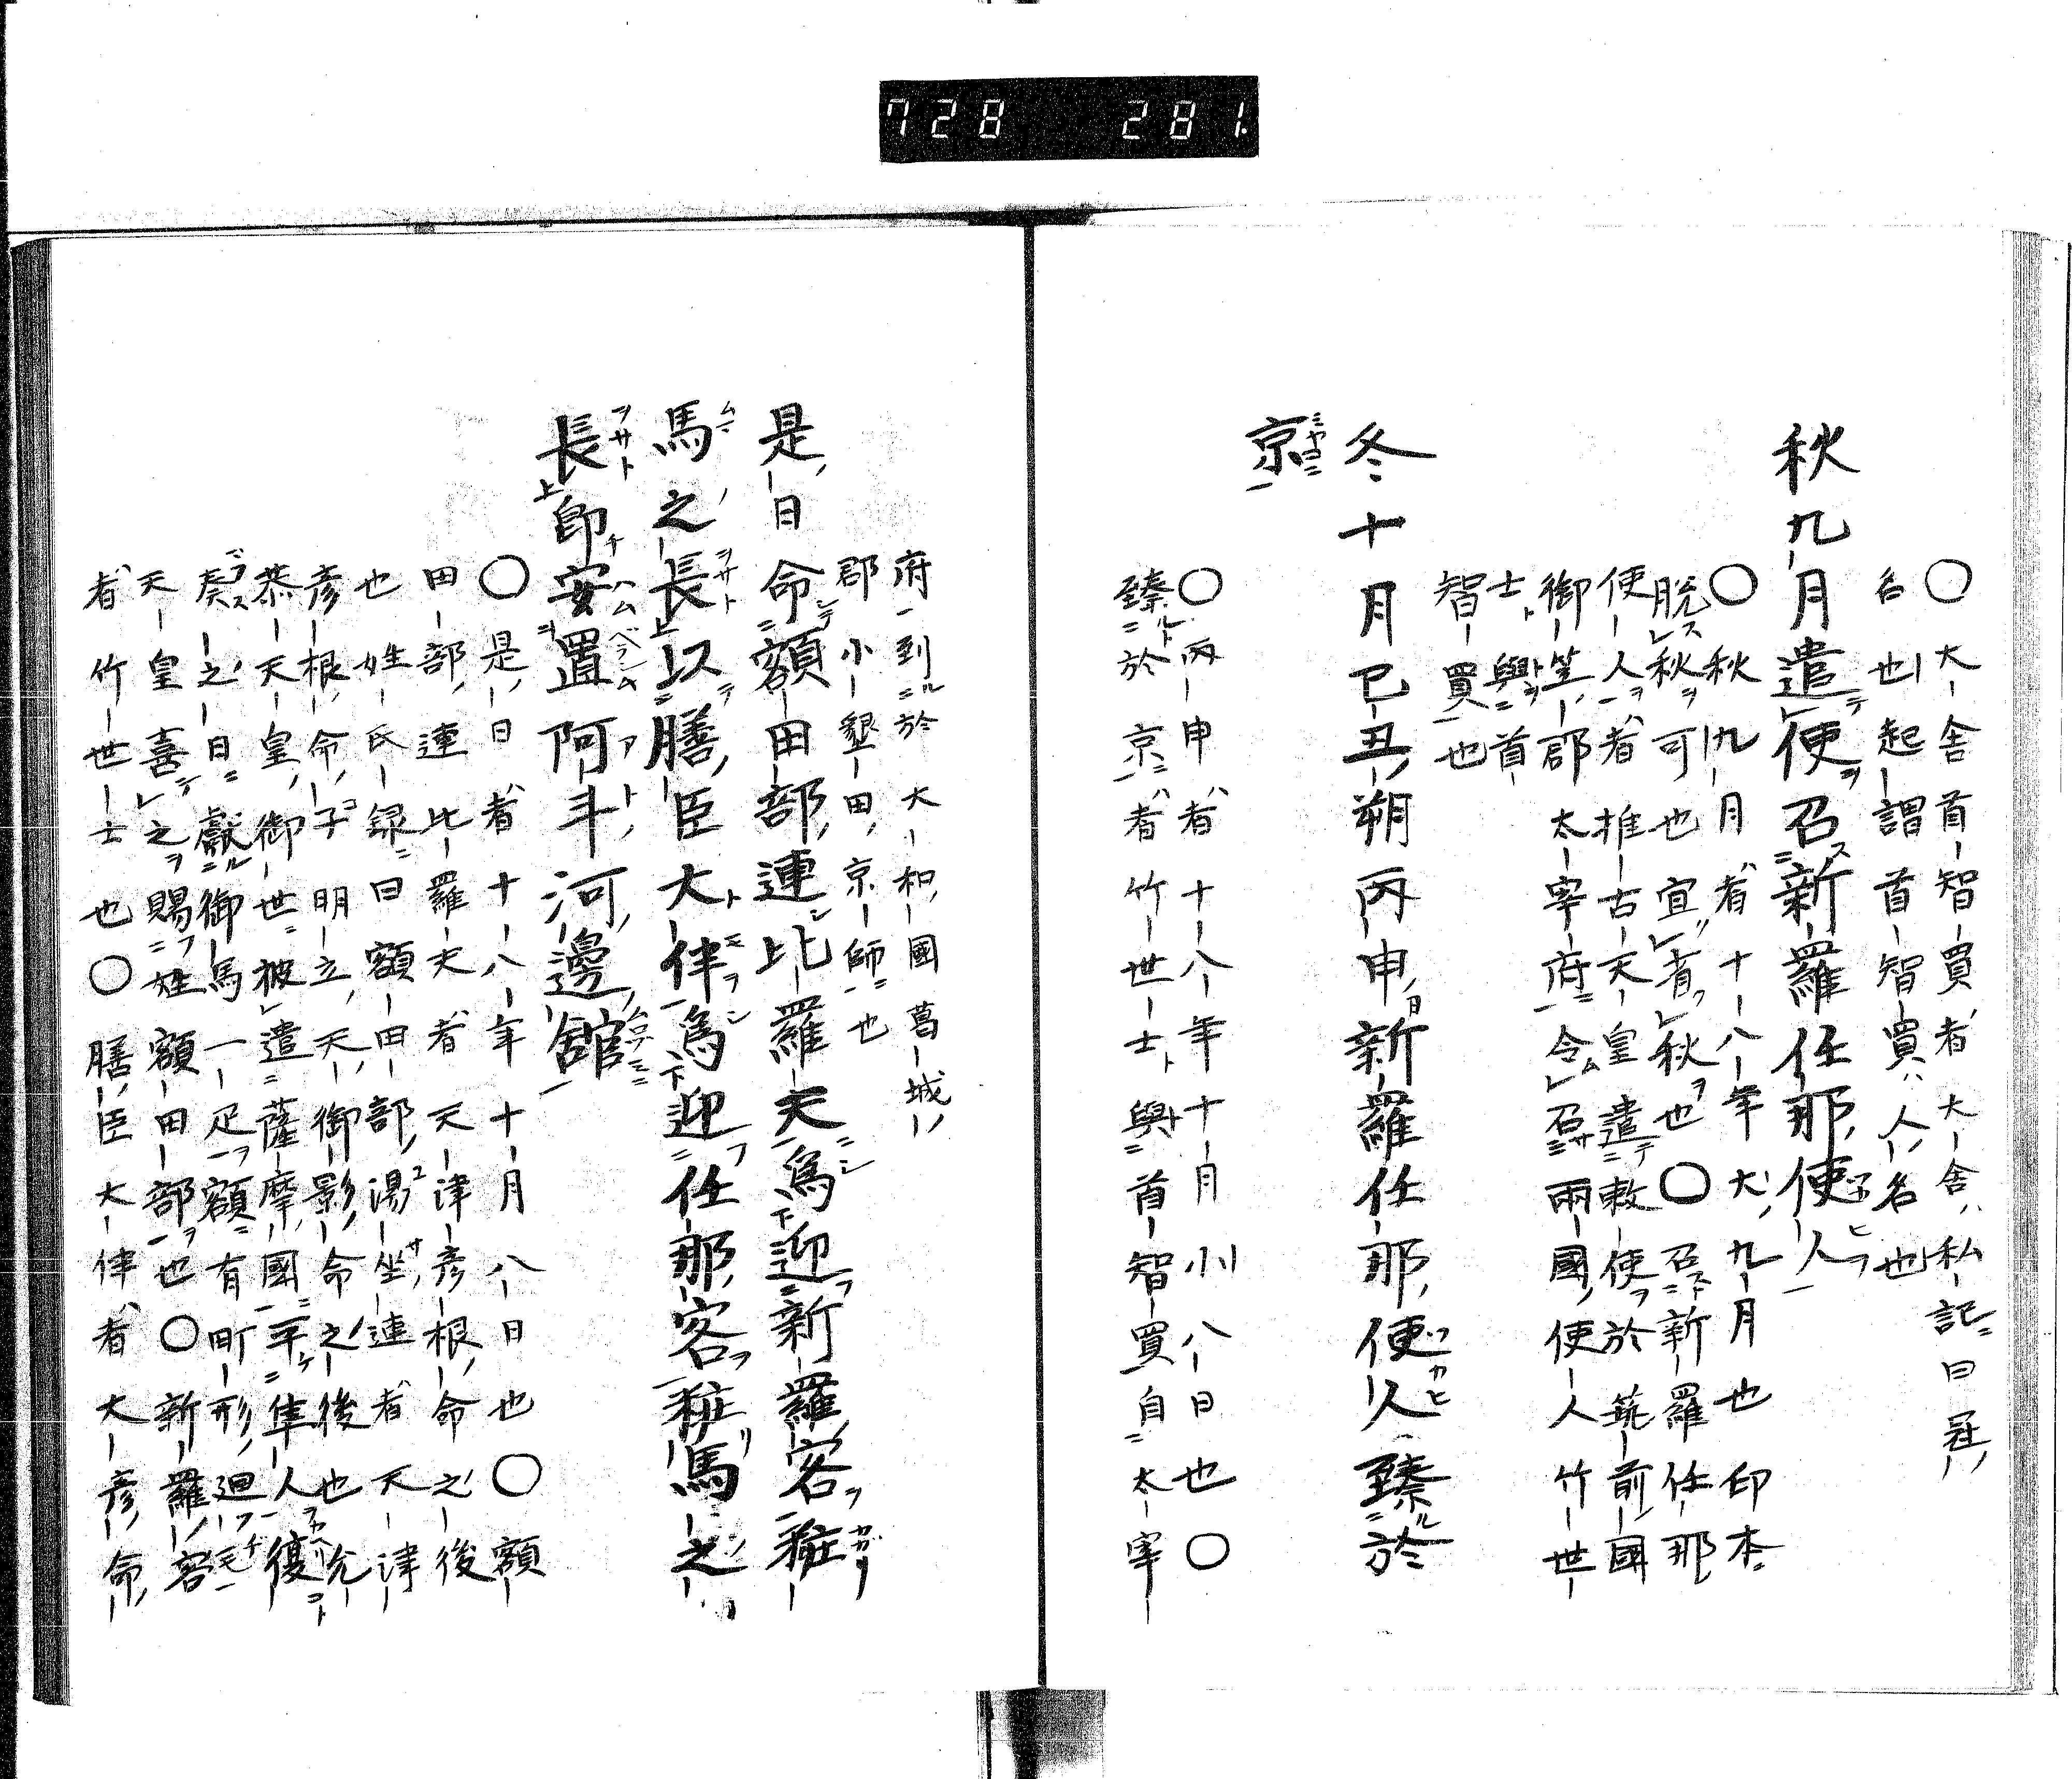 728 281.
〇大舎首智買者大舎私記曰冠
名也起謂首智買人名也
秋九月遣使召新羅任那使人
〇秋九月者十八年大九月也印本
脱秋可也宜省秋也〇召新羅任那
使人者推古天皇遣敕使於筑前國
御笠郡太宰府令召兩國使人竹世
士與首
智買也
冬十月己丑朔丙申新羅任那使人臻於
京
〇丙申者十八年十月小八日也〇
臻於京者竹世士與首智買自太宰
府到於大和國葛城
郡小墾田京師也
是日命額田部連比羅夫為迎新羅客粧
馬之長以膳臣大伴為迎任那客粧馬之
長即安置阿斗河邊舘
〇是日者十八年十月八日也〇額
田部連比羅夫者天津彦根命之後
也姓氏録曰額田部湯坐連者天津
彦根命子明立天御影命之後也允
恭天皇御世被遣薩摩國平隼人復
奏之日獻御馬一疋額有町形廻毛
天皇喜之賜姓額田部也〇新羅客
者竹世士也〇膳臣大伴者大彦命